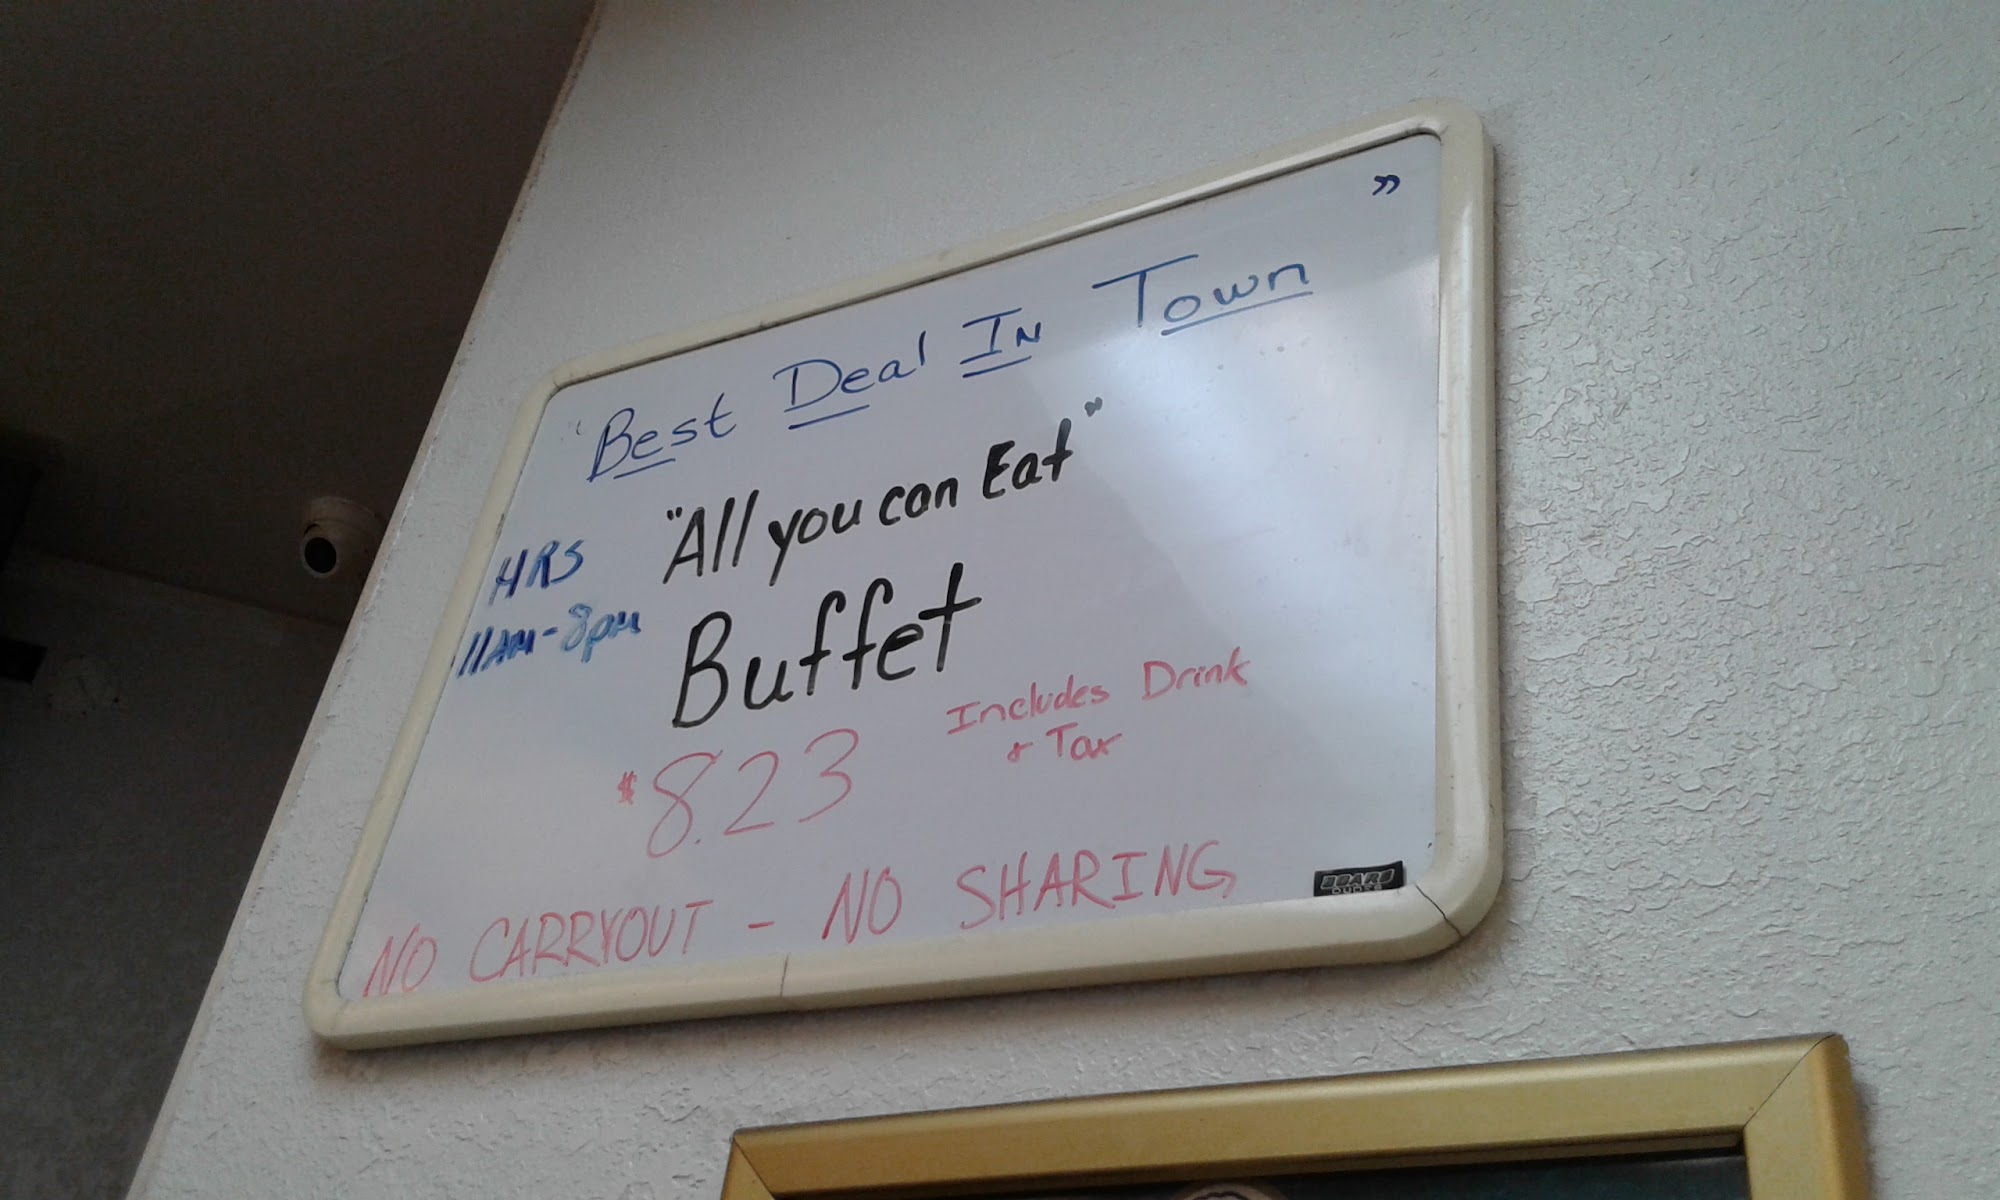 "Best Deal In Town"
"All you can Eat"
HRS
11AM-8pm
Buffet
$8.23
Includes Drink
& Tax
NO CARRYOUT - NO SHARING
BOARD
DUDES